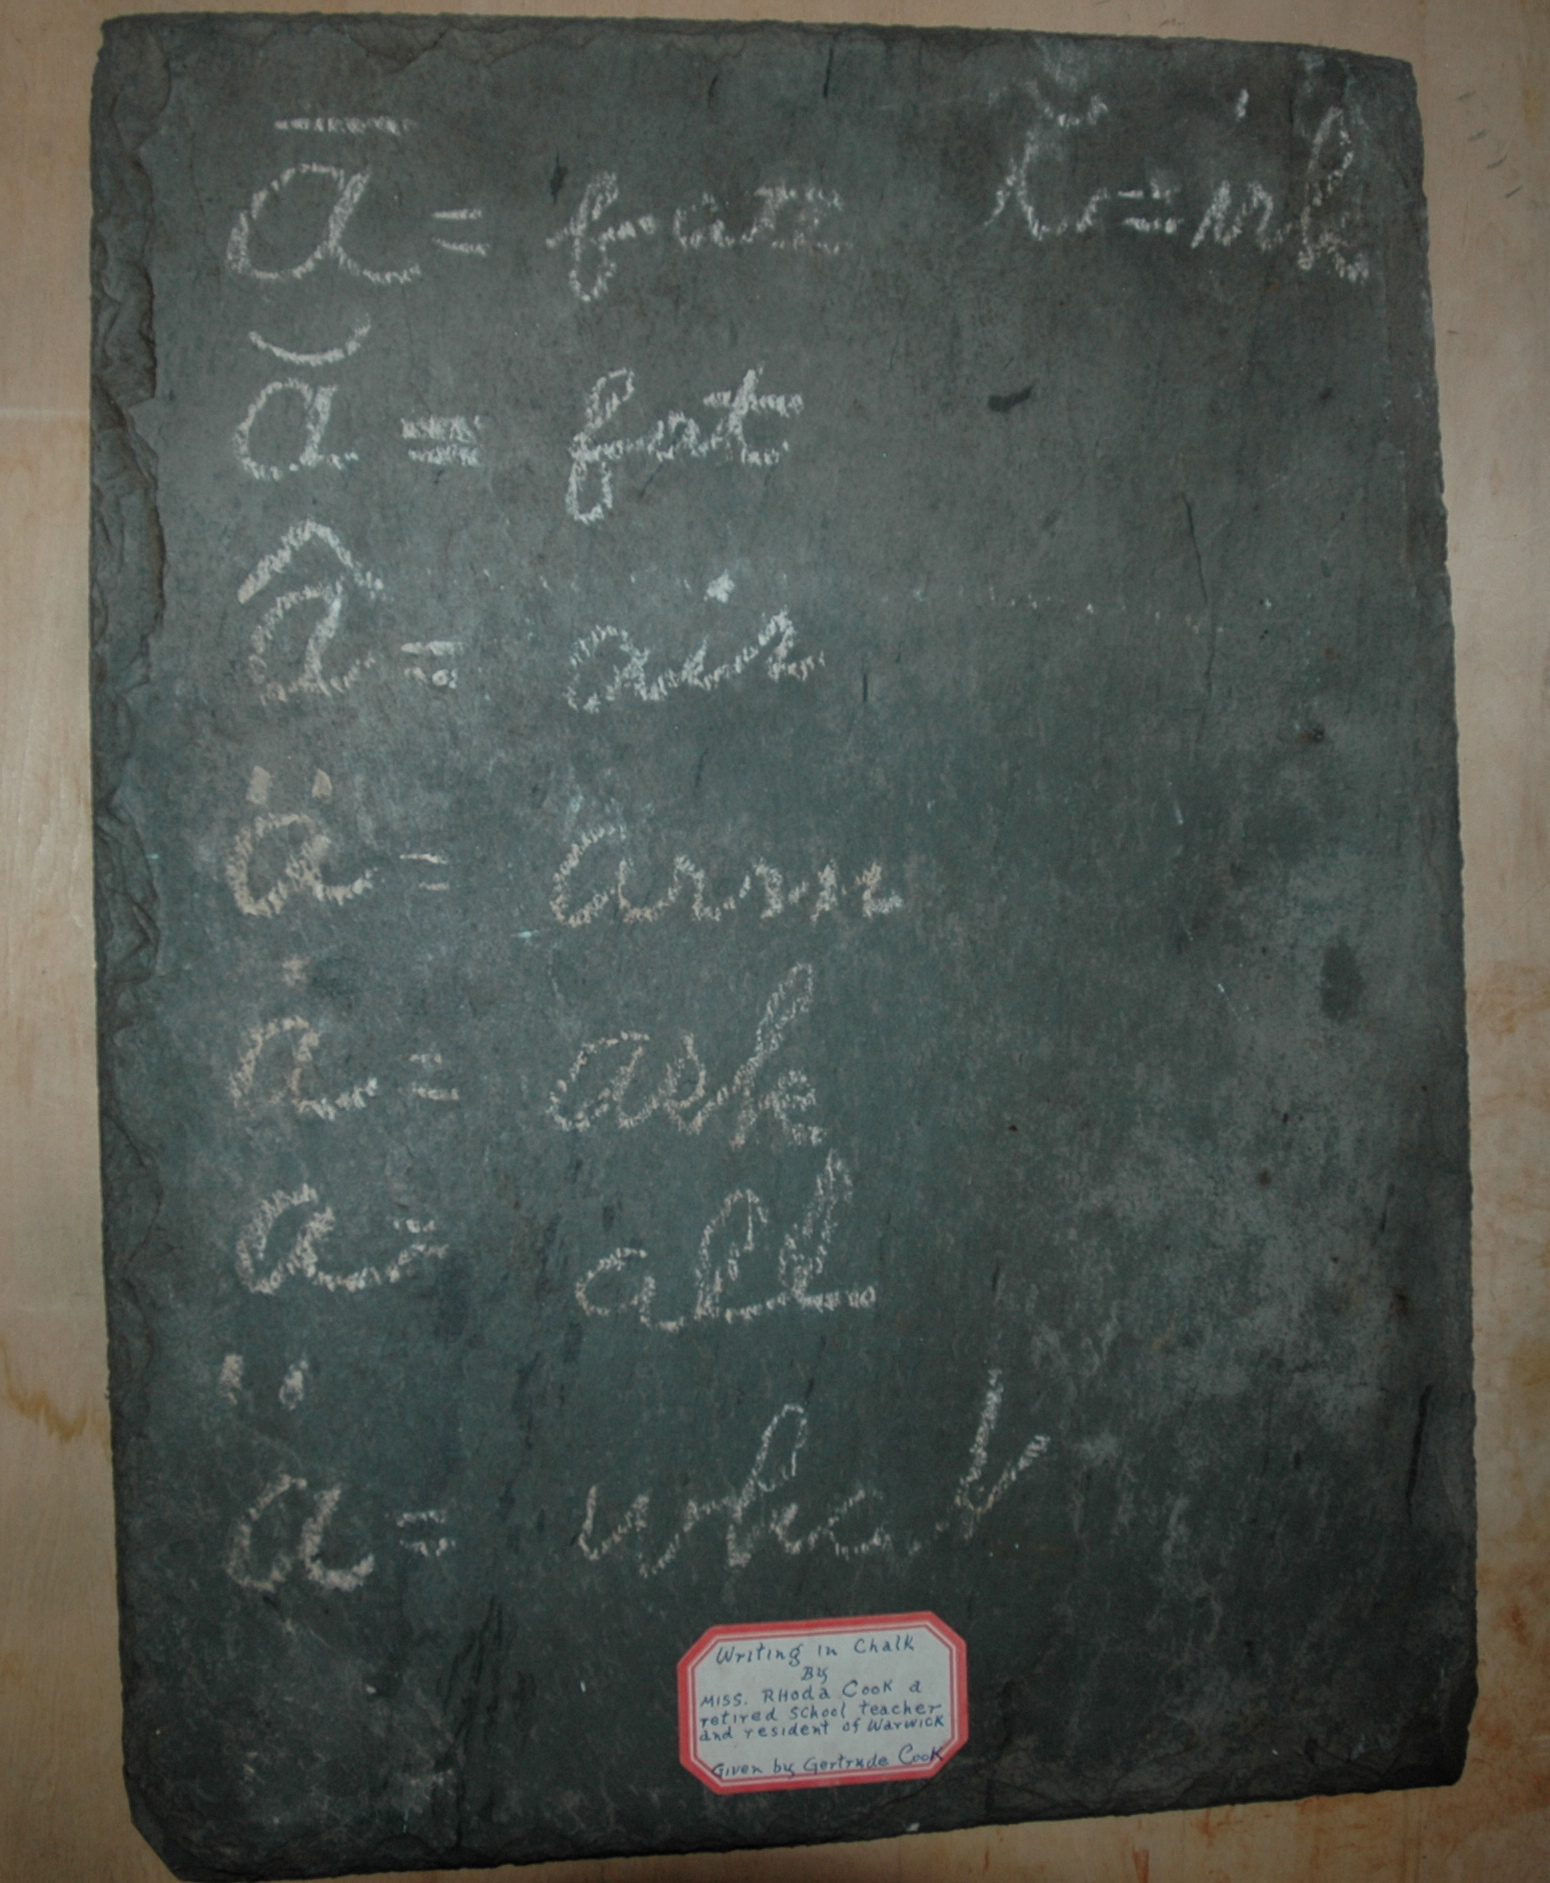 ā = fate ĭ = ink
ă = fat
â = air
ä = arm
ȧ = ask
a̤ = all
a = what
Writing in Chalk
By
Miss. Rhoda Cook a
retired school teacher
and resident of Warwick
Given by Gertrude Cook